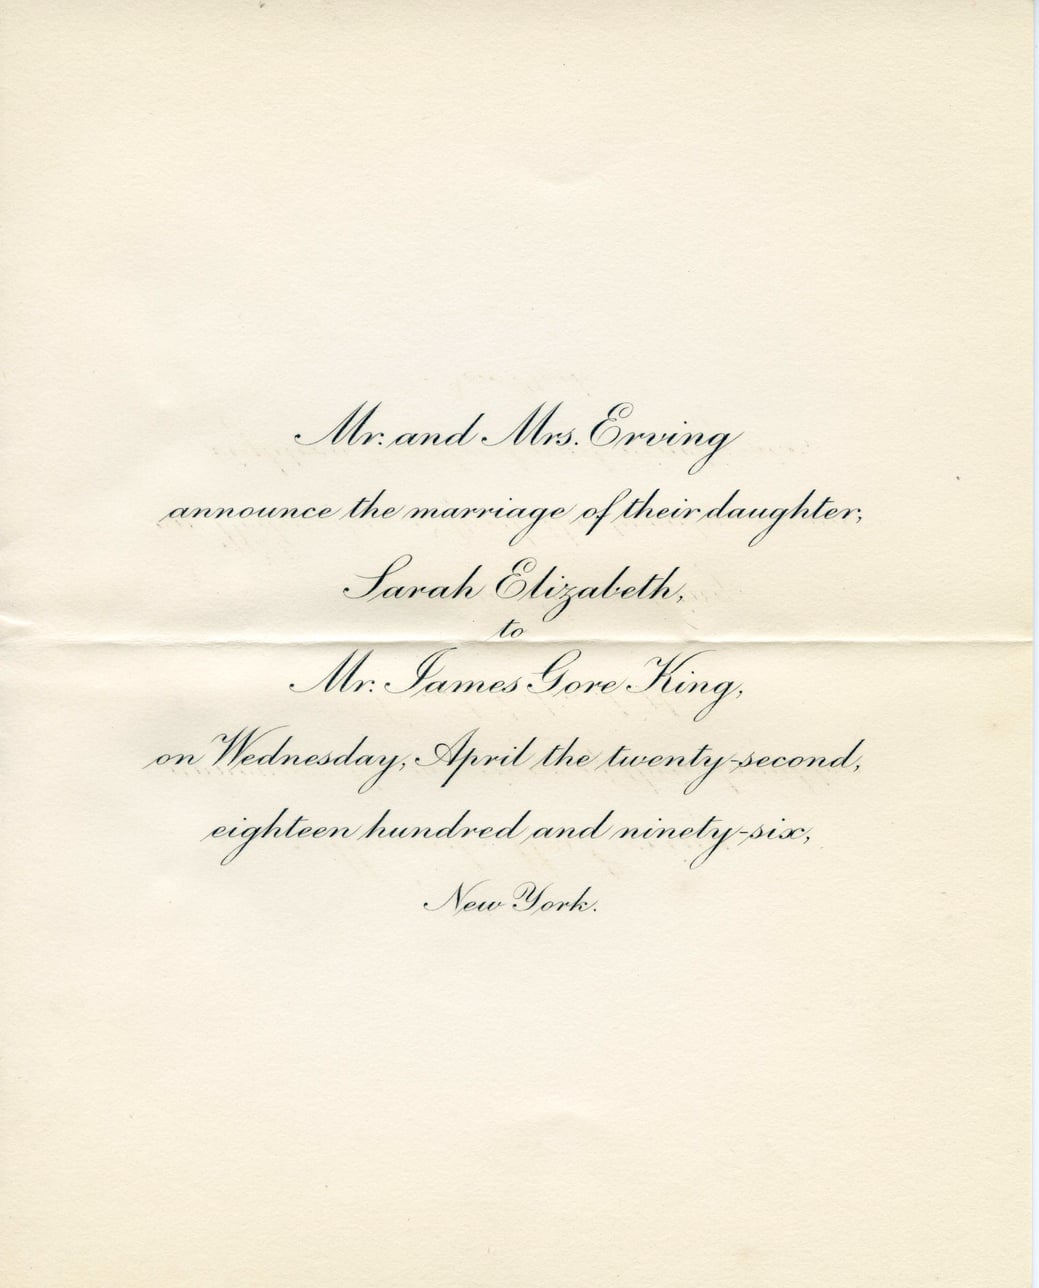 Mr. and Mrs. Erving
announce the marriage of their daughter,
Sarah Elizabeth,
to
Mr. James Gore King,
on Wednesday, April the twenty-second,
eighteen hundred and ninety-six,
New York.